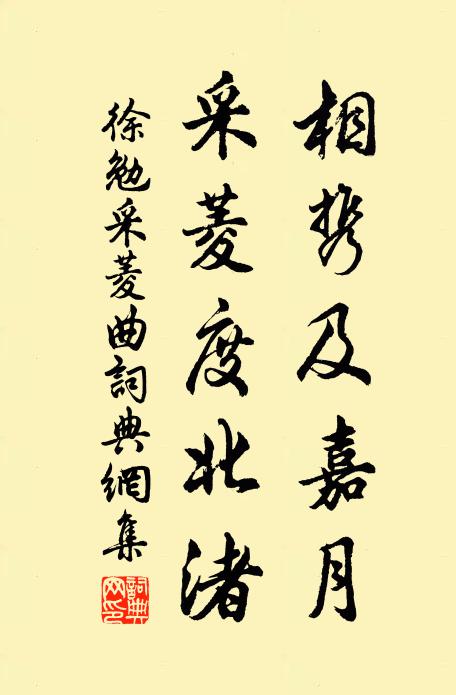 相携及嘉月
采菱度北渚
徐勉采菱曲詞典網集
詞典网印